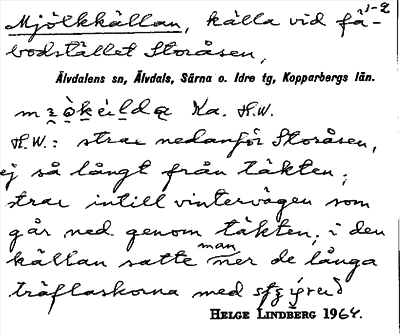 1-2
Mjölkkällan, källa vid fä-
bodstället Storåsen,
Älvdalens sn, Älvdals, Särna o. Idre tg, Kopparbergs län.
Ka. H.W.
H.W.: strax nedanför Storåsen,
ej så långt från täkten;
strax intill vintervägen som
går ned genom täkten; i den
källan satte man ner de långa
träflaskorna med
HELGE LINDBERG 1964.